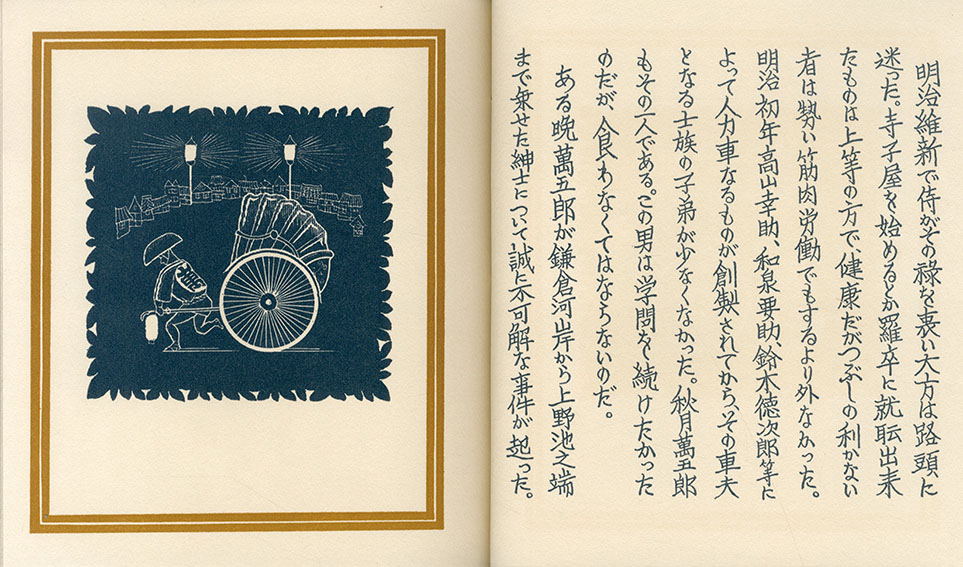 明治維新で侍がその祿を喪い大方は路頭に
迷った。寺子屋を始めるとか羅卒に就転出来
たものは上等の方で健康だがつぶしの利かない
者は勢い筋肉労働でもするより外なかった。
明治初年高山幸助、和泉要助、鈴木徳次郎等に
よって人力車なるものが創製されてから、その車夫
となる士族の子弟が少なくなかった。秋月萬五郎
もその一人である。この男は学問を続けたかった
のだが、食わなくてはならないのだ。
ある晩萬五郎が鎌倉河岸から上野池之端
まで乗せた紳士について誠に不可解な事件が起った。